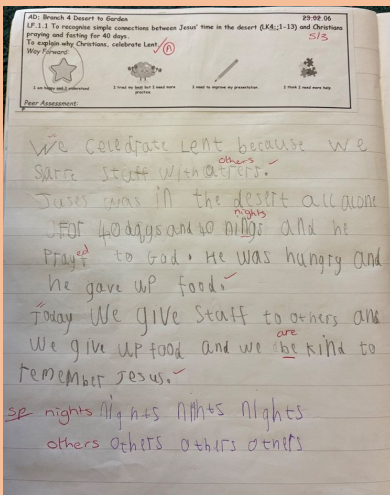 AD: Branch 4 Desert to Garden 23.02.06
LF.1.1 To recognise simple connections between Jesus' time in the desert (LK4:;1-13) and Christians
praying and fasting for 40 days. 5/3
To explain why Christians, celebrate Lent.
Way Forward:
I am happy and I understand I tried my best but I need more practice I need to improve my presentation I think I need more help
Peer Assessment:
We celebrate Lent because we
others
sarre staff with atrers.
Juses was in the desert all alone
nights
For 40 daggs and 40 nings and he
Prayed to God. He was hungry and
he gave up food.
Today we give staff to others and
are
we give up food and we be kind to
remember Jesus.
sp nights nights nihts nights
others others others others